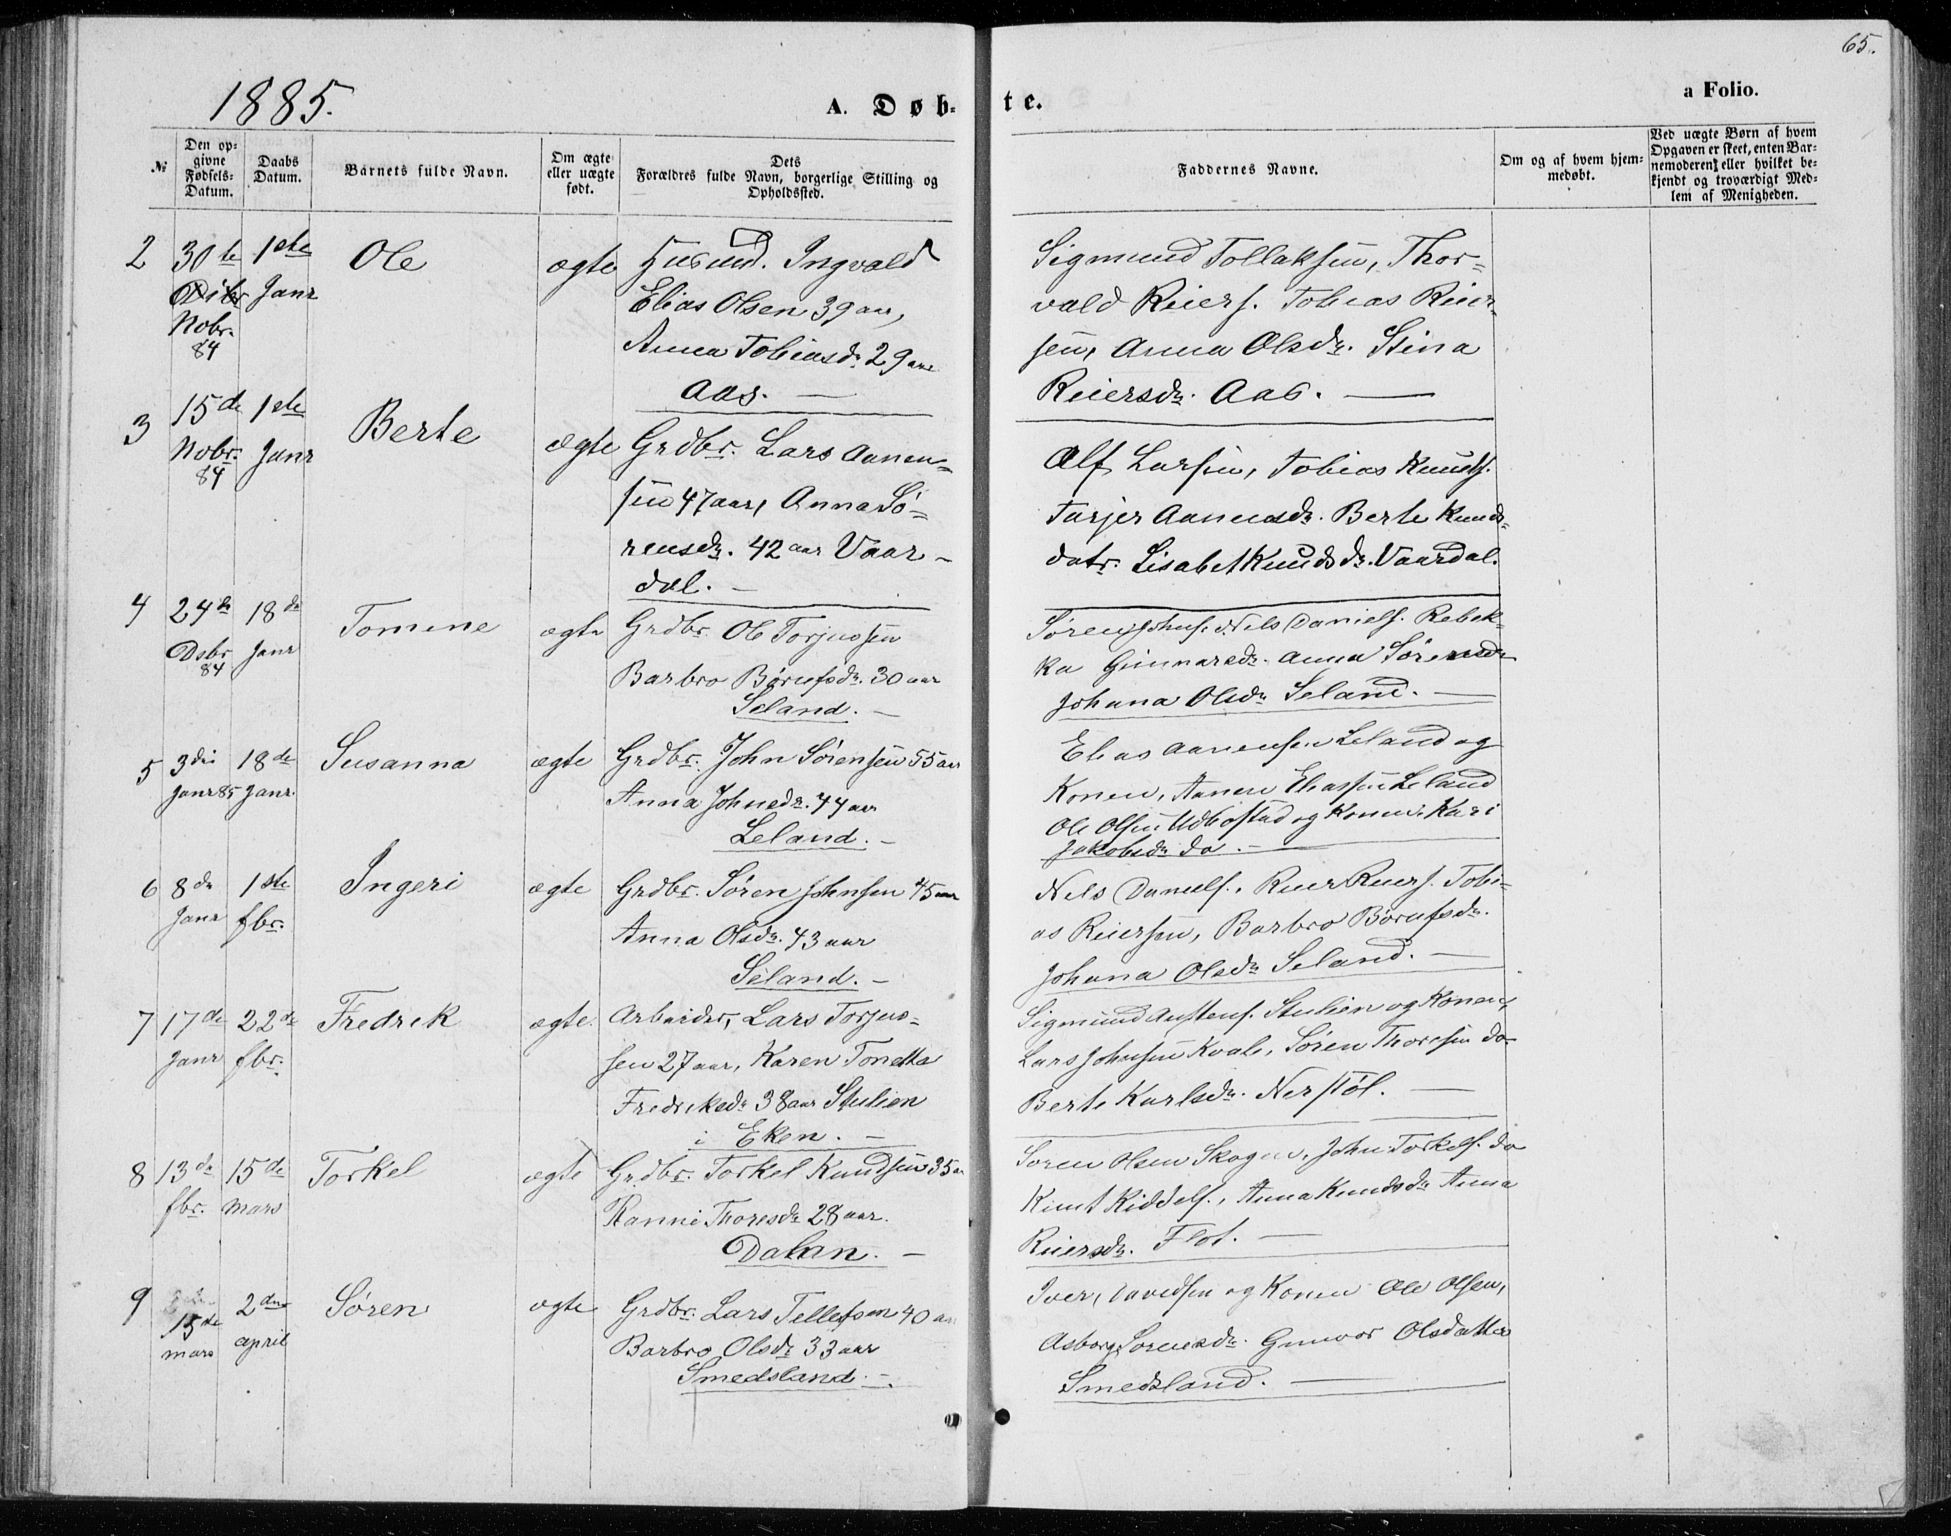 65.
1885.
A. Døb-
te.
a Folio.
№
Den op-
givne
Fødsels-
Datum.
Daabs
Datum.
Barnets fulde Navn.
Om ægte
eller uægte
født.
Dets
Forældres fulde Navn, borgerlige Stilling og
Opholdssted.
Faddernes Navne.
Om og af hvem hjem-
medøbt.
Ved uægte Børn af hvem
Opgaven er skeet, enten Bar-
nemoderen, eller hvilket be-
kjendt og troværdigt Med-
lem af Menigheden.
2 30te 1ste Ole ægte Husmd. Ingvald
Janr
Nobr.
84
Elias Olsen 39 aar,
Anna Tobiasdr. 29 aar
Aas. —
Sigmund Tollaksen, Thor-
vald Reiers. Tobias Reier
sen, Anna Olsdr. Stina
Reiersdr. Aas. —
3 15de 1ste Berte ægte Grdbr. Lars Aanen-
Nobr. Janr
84
sen 47 aar, Anna Sø-
rensdr. 42 aar Vaar-
dal. —
Alf Larsen, Tobias Knuds.
Tarjer Aanensdr. Berte Knuds-
datr. Lisabet Knudsdr. Vaardal.
4 24de 18de Tomine ægte Grdbr. Ole Torjussen
Dsbr Janr
84
Barbro Børufsdr. 30 aar
Seland. —
Søren Johns. Nels Daniels. Rebek-
ka Gunnarsdr. Anna Sørensdr
Johana Olsdr Seland. —
5 3die 18de Susanna ægte Grdbr. John Sørensen 55 aar
Janr 85 Janr.
Anna Johnsdr. 44 aar
Leland. —
Elias Aanensen Leland og
Konen, Aanen Eliassen Leland
Ole Olsen Udbostad og Konen Kari
Jakobsdr do. —
6 8de 1ste Ingeri ægte Grdbr. Søren Johnsen 45 aar
Janr fbr.
Anna Olsdr. 43 aar
Seland. —
Nels Daniels. Reier Reiers. Tobi-
as Reiersen, Barbro Børufsdr.
Johana Olsdr Seland. —
7 17de 22de Fredrik ægte. Arbeider, Lars Torjus-
Janr fbr.
sen 27 aar, Karen Tonetta
Fredriksdr 38 aar Stulien
i Eken. —
Sigmund Austens. Stulien og Konen,
Lars Johnsen Kvale, Søren Thoresen do
Berte Karlsdr. Nerstøl. —
8 13de 15de Torkel ægte Grdbr. Torkel Knudsen 35 a
fbr. mars
Ranni Thoresdr 28 aar.
Dalan. —
Søren Olsen Skogen, John Torkels. do
Knut Kiddels., Anna Knudsdr Anna
Reiersdr. Flot. —
9 15de 2den Søren ægte Grdbr. Lars Tellefsen 40 aar
mars april
Barbro Olsdr 33 aar
Smedsland. —
Iver Davidsen og Konen Ole Olsen,
Asborg Sørensdr. Gunvor Olsdatter
Smedsland. —